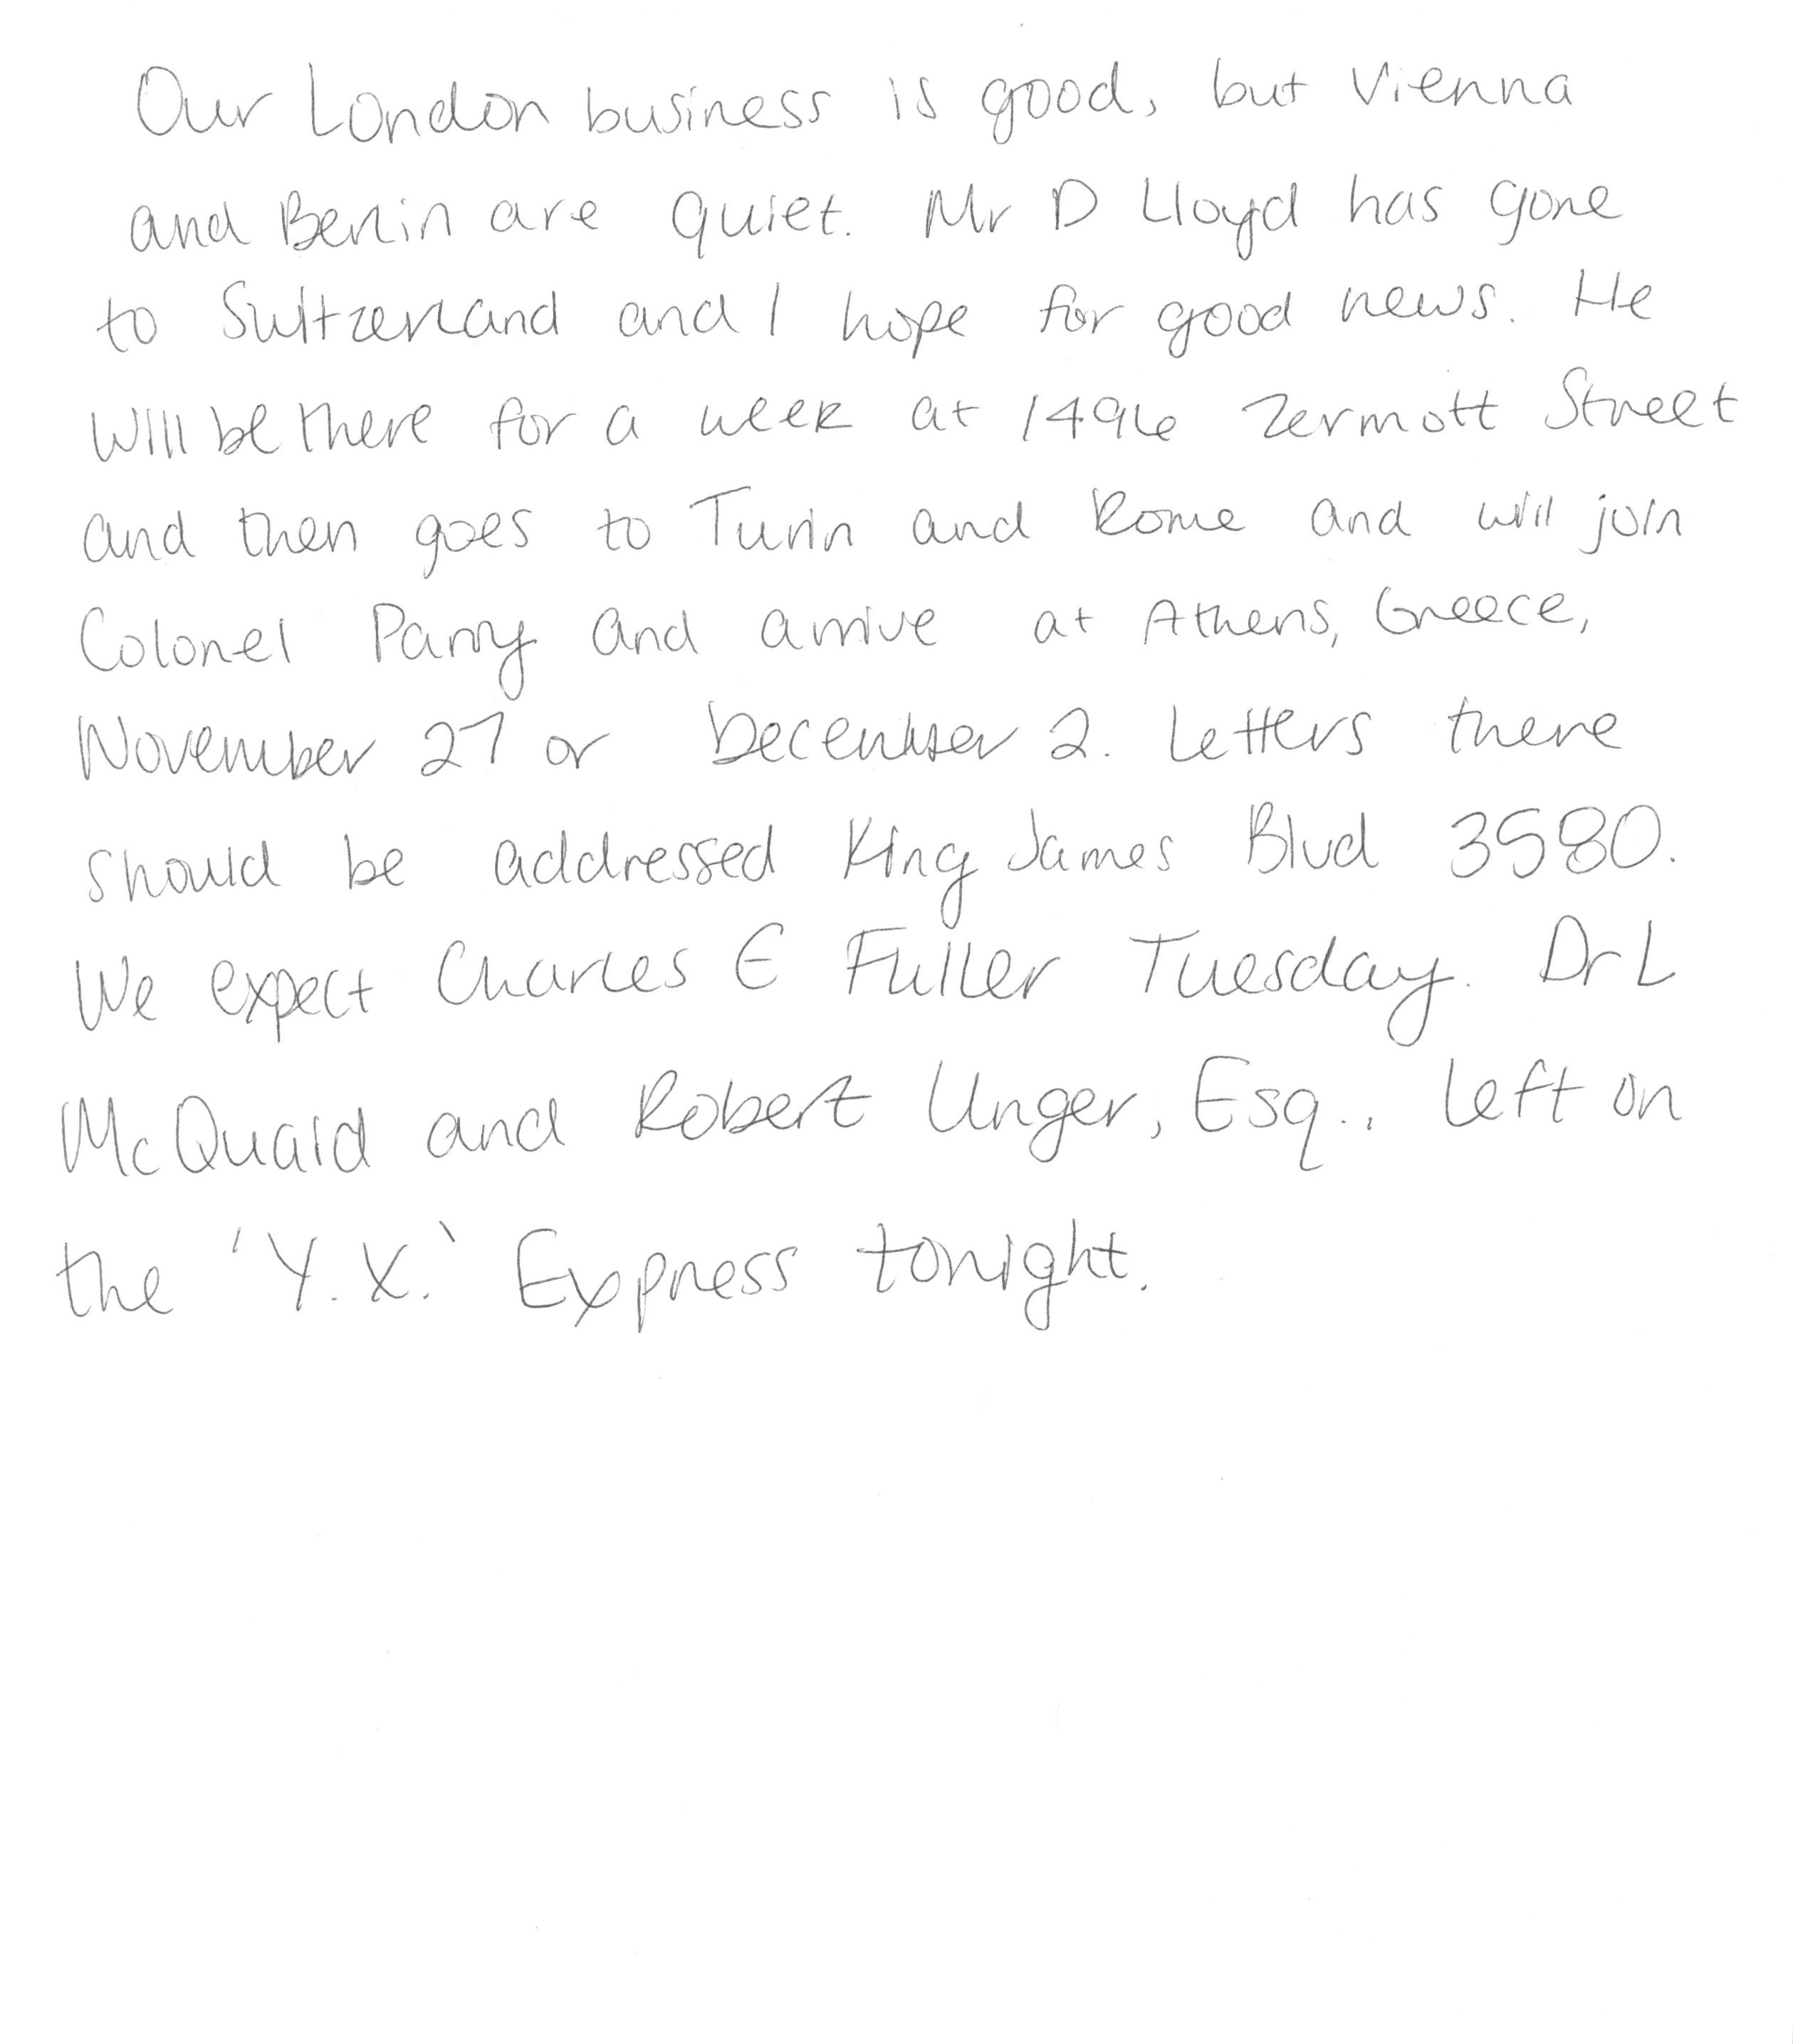 Our London business is good, but Vienna
and Berlin are quiet. Mr D Lloyd has gone
to Switzerland and I hope for good news. He
will be there for a week at 1496 Zermott Street
and then goes to Turin and Rome and will join
Colonel Parry and arrive at Athens, Greece,
November 27 or December 2. Letters there
should be addressed King James Blvd 3580.
We expect Charles E Fuller Tuesday. Dr L
McQuaid and Robert Unger, Esq., left on
the 'Y.X.' Express tonight.